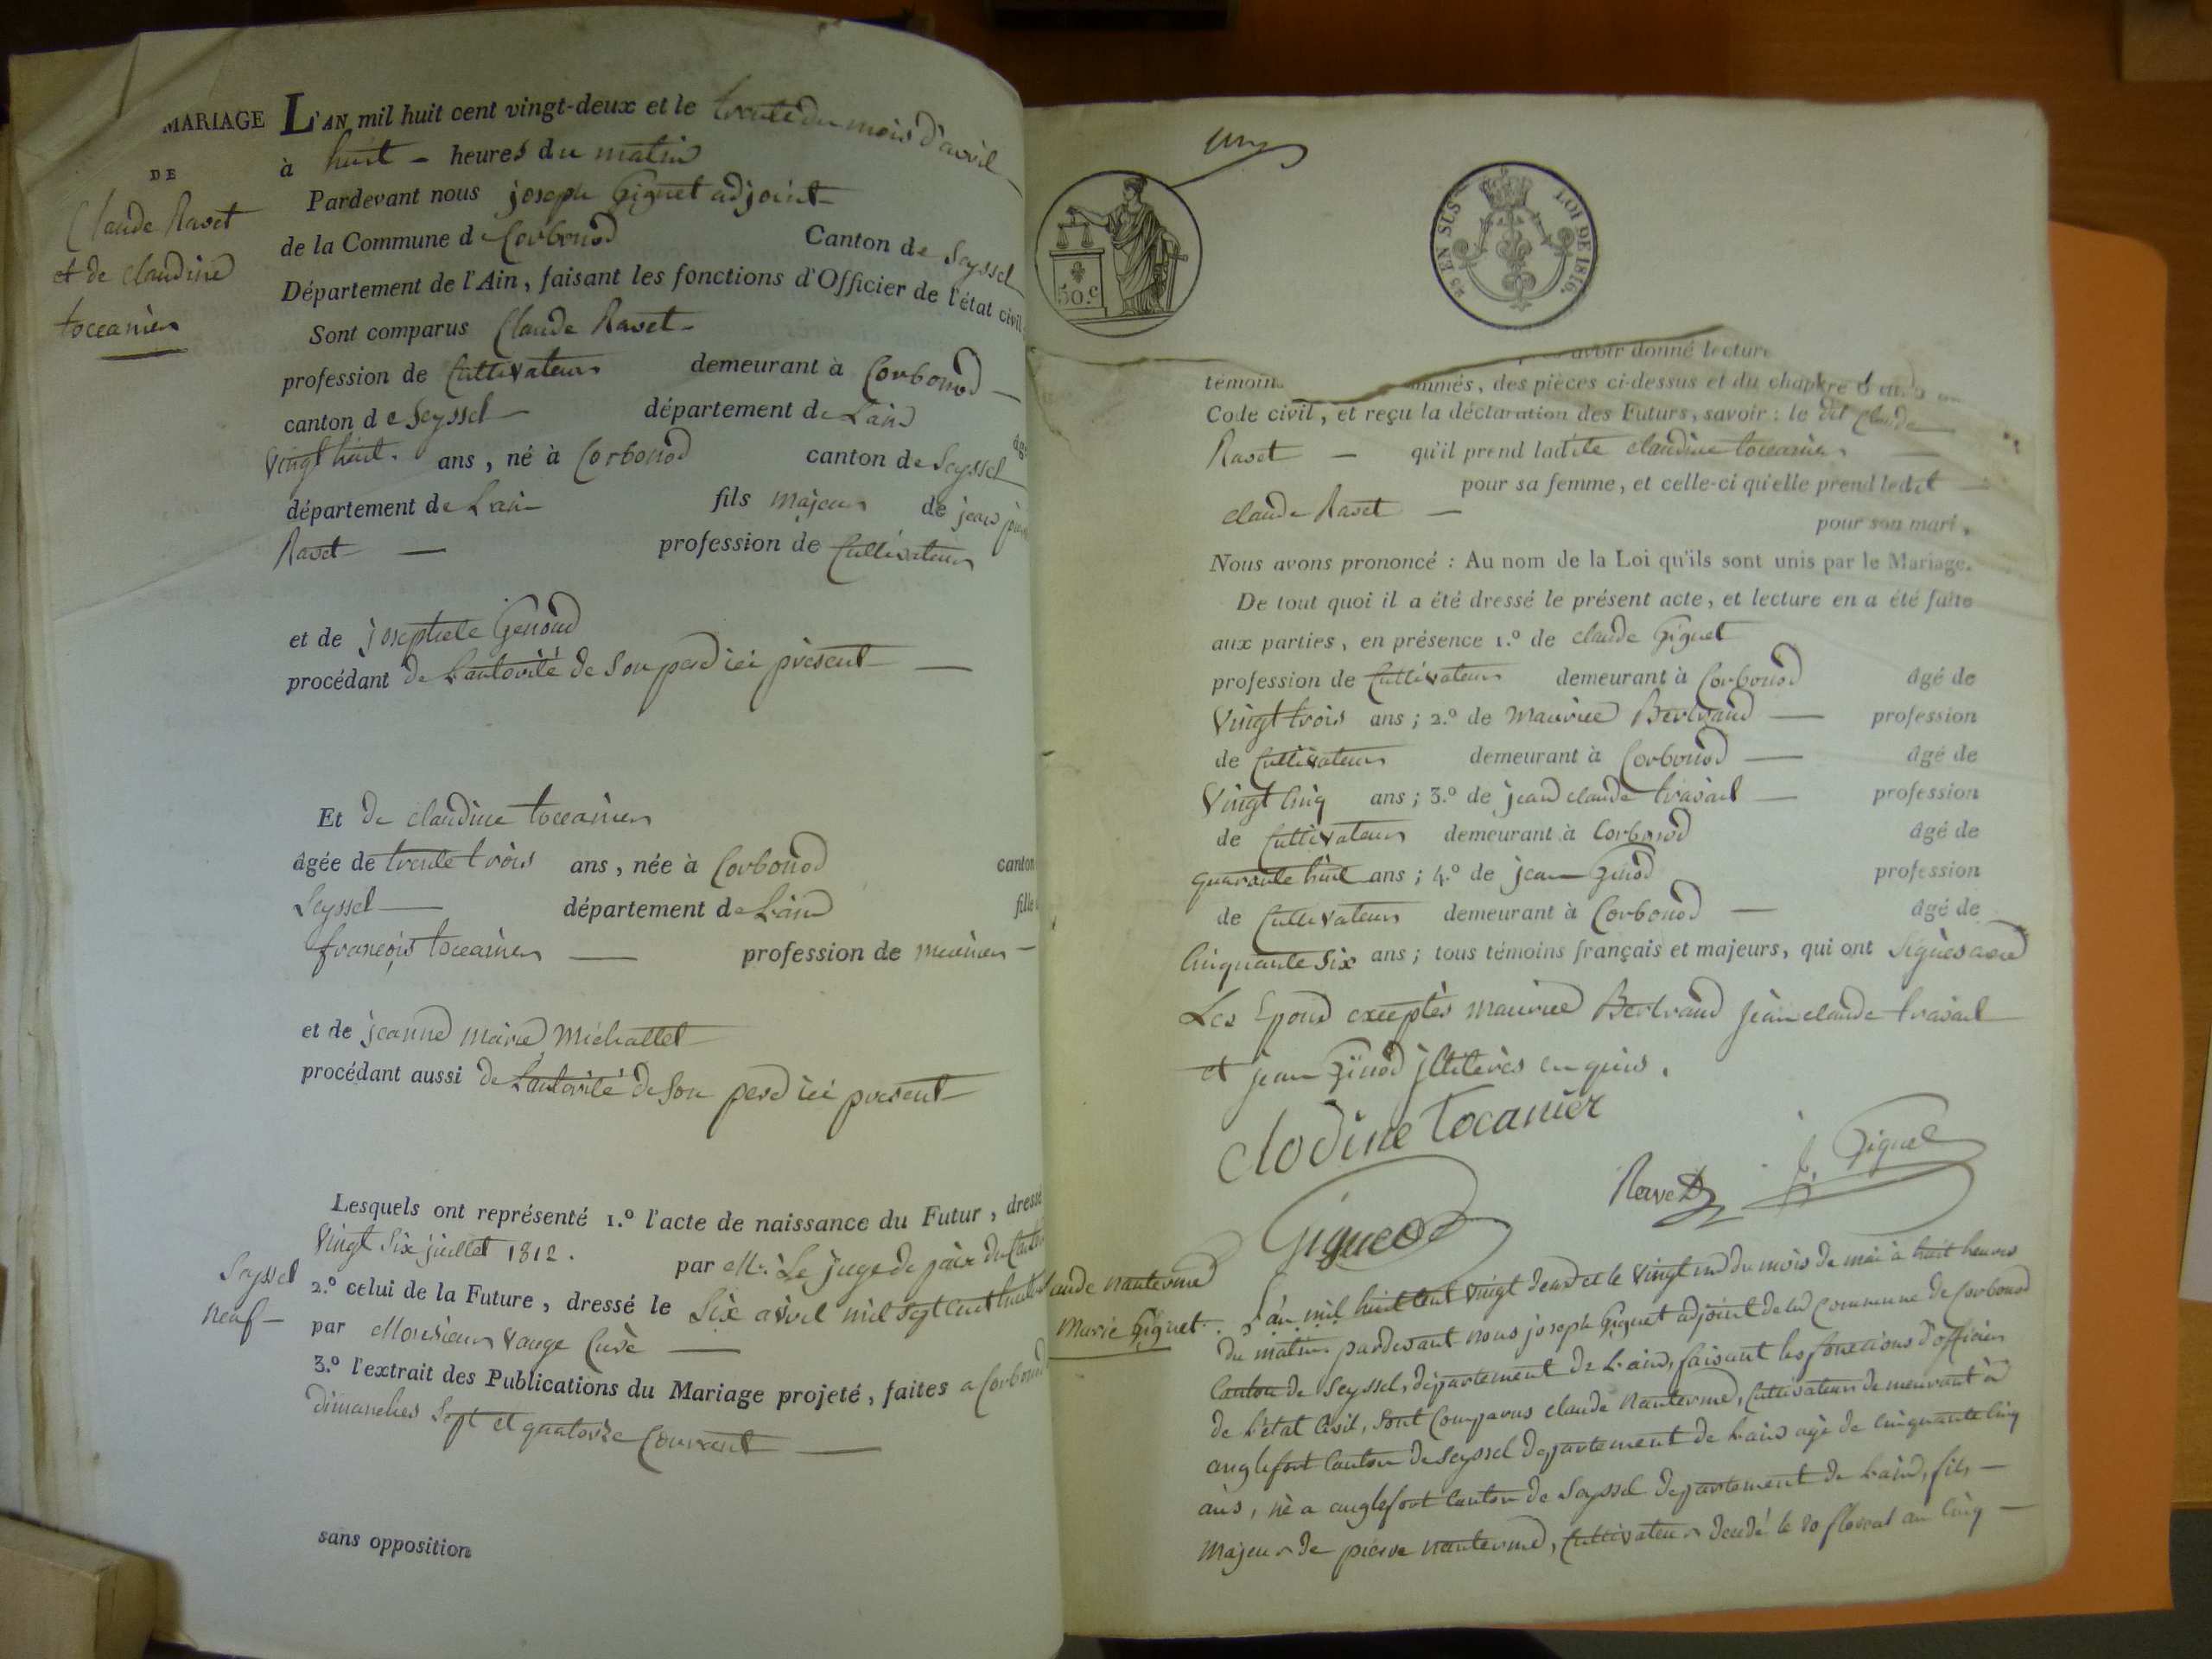 MARIAGE
DE
Claude Ravet
et de claudine
toccanier
L'AN mil huit cent vingt-deux et le trente du mois d'avril
à huit - heures du matin
Pardevant nous joseph Giguet adjoint
de la Commune de Corbonod Canton de Seyssel
Département de l'Ain, faisant les fonctions d'Officier de l'état civil
Sont comparus Claude Ravet
profession de Cultivateur demeurant à Corbonod
canton de Seyssel département de L'ain
Vingt huit ans, né à Corbonod canton de Seyssel
département de L'ain fils majeur de jean
Ravet profession de Cultivateur
et de josephete Genoud
procédant de L'autorité de son pere ici présent
Et de claudine toccanier
âgée de trente trois ans, née à Corbonod canton
Seyssel département de L'ain
françois toccanier profession de
et de jeanne marie Michallet
procédant aussi de L'autorité de son pere ici present
Lesquels ont représenté 1.º l'acte de naissance du Futur, dressé
Vingt Six juillet 1812. par Mr. Le juge de paix du Canton
Seyssel
2.º celui de la Future, dressé le Six avril mil sept cent huitante
neuf
par Monsieur Vauge Curè
3.º l'extrait des Publications du Mariage projeté, faites a Corbonod
dimanches Sept et quatorze Courant
sans opposition
50.c
EN SUS
LOI DE 1816.
avoir donné lecture
témoin mmés, des pièces ci-dessus et du chapitre 6
Code civil, et reçu la déclaration des Futurs, savoir: le dit Claude
Ravet qu'il prend ladite claudine toccanier
pour sa femme, et celle-ci qu'elle prend ledit
claude Ravet pour son mari,
Nous avons prononcé : Au nom de la Loi qu'ils sont unis par le Mariage.
De tout quoi il a été dressé le présent acte, et lecture en a été faite
aux parties, en présence 1.º de claude Giguet
profession de Cultivateur demeurant à Corbonod âgé de
Vingt trois ans; 2.º de Maurice Bertrand profession
de Cultivateur demeurant à Corbonod âgé de
Vingt Cinq ans; 3.º de jean claude travail profession
de Cultivateur demeurant à Corbonod âgé de
quarante huit ans; 4.º de jean Ginod profession
de Cultivateur demeurant à Corbonod âgé de
Cinquante Six ans; tous témoins français et majeurs, qui ont Signès avec
Les Epoux exceptès maurice Bertrand jean claude travail
et jean Ginod jlliterès enquis.
clodine Tocanier
Ravet J. Giguet
Giguet
aude nanterme
Marie Giguet
L'an mil huit cent vingt deux et le vingt un du mois de mai à huit heures
du matin pardevant nous joseph Giguet adjoint de la Commune de Corbonod
Canton de Seyssel, département de L'ain, faisant les fonctions d'officier
de L'état Civil, Sont Comparus claude Nanterme, Cultivateur demeurant à
anglefort Canton de Seyssel département de L'ain agé de Cinquante Cinq
ans, nè a anglefort Canton de Seyssel département de L'ain, fils
Majeur de pierre nanterme, Cultivateur dècédé le 20 floreal an Cinq